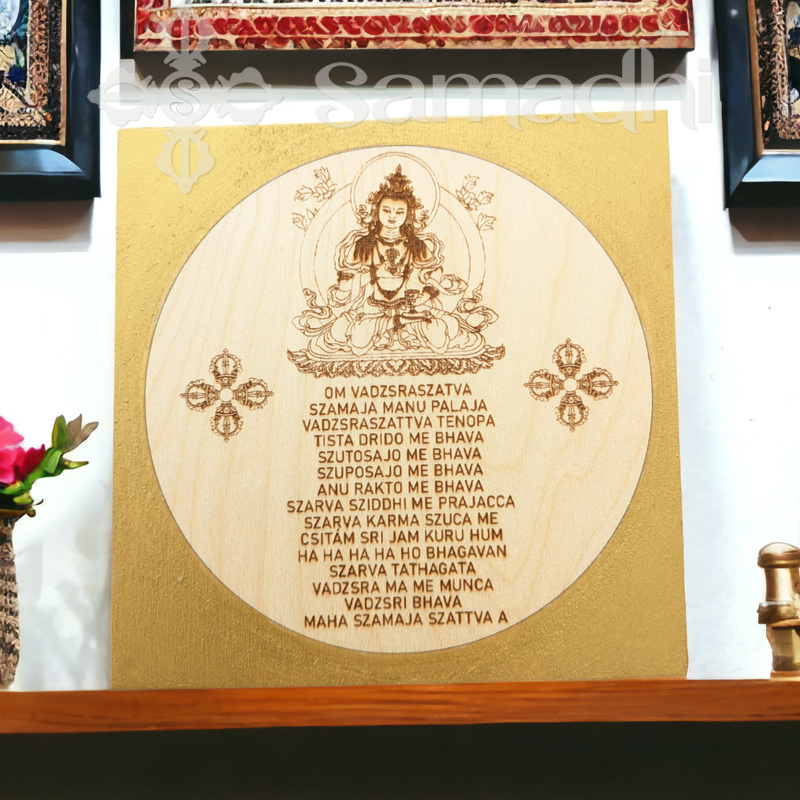 Samadhi
OM VADZSRASZATVA
SZAMAJA MANU PALAJA
VADZSRASZATTVA TENOPA
TISTA DRIDO ME BHAVA
SZUTOSAJO ME BHAVA
SZUPOSAJO ME BHAVA
ANU RAKTO ME BHAVA
SZARVA SZIDDHI ME PRAJACCA
SZARVA KARMA SZUCA ME
CSITÁM SRI JAM KURU HUM
HA HA HA HA HO BHAGAVAN
SZARVA TATHAGATA
VADZSRA MA ME MUNCA
VADZSRI BHAVA
MAHA SZAMAJA SZATTVA A